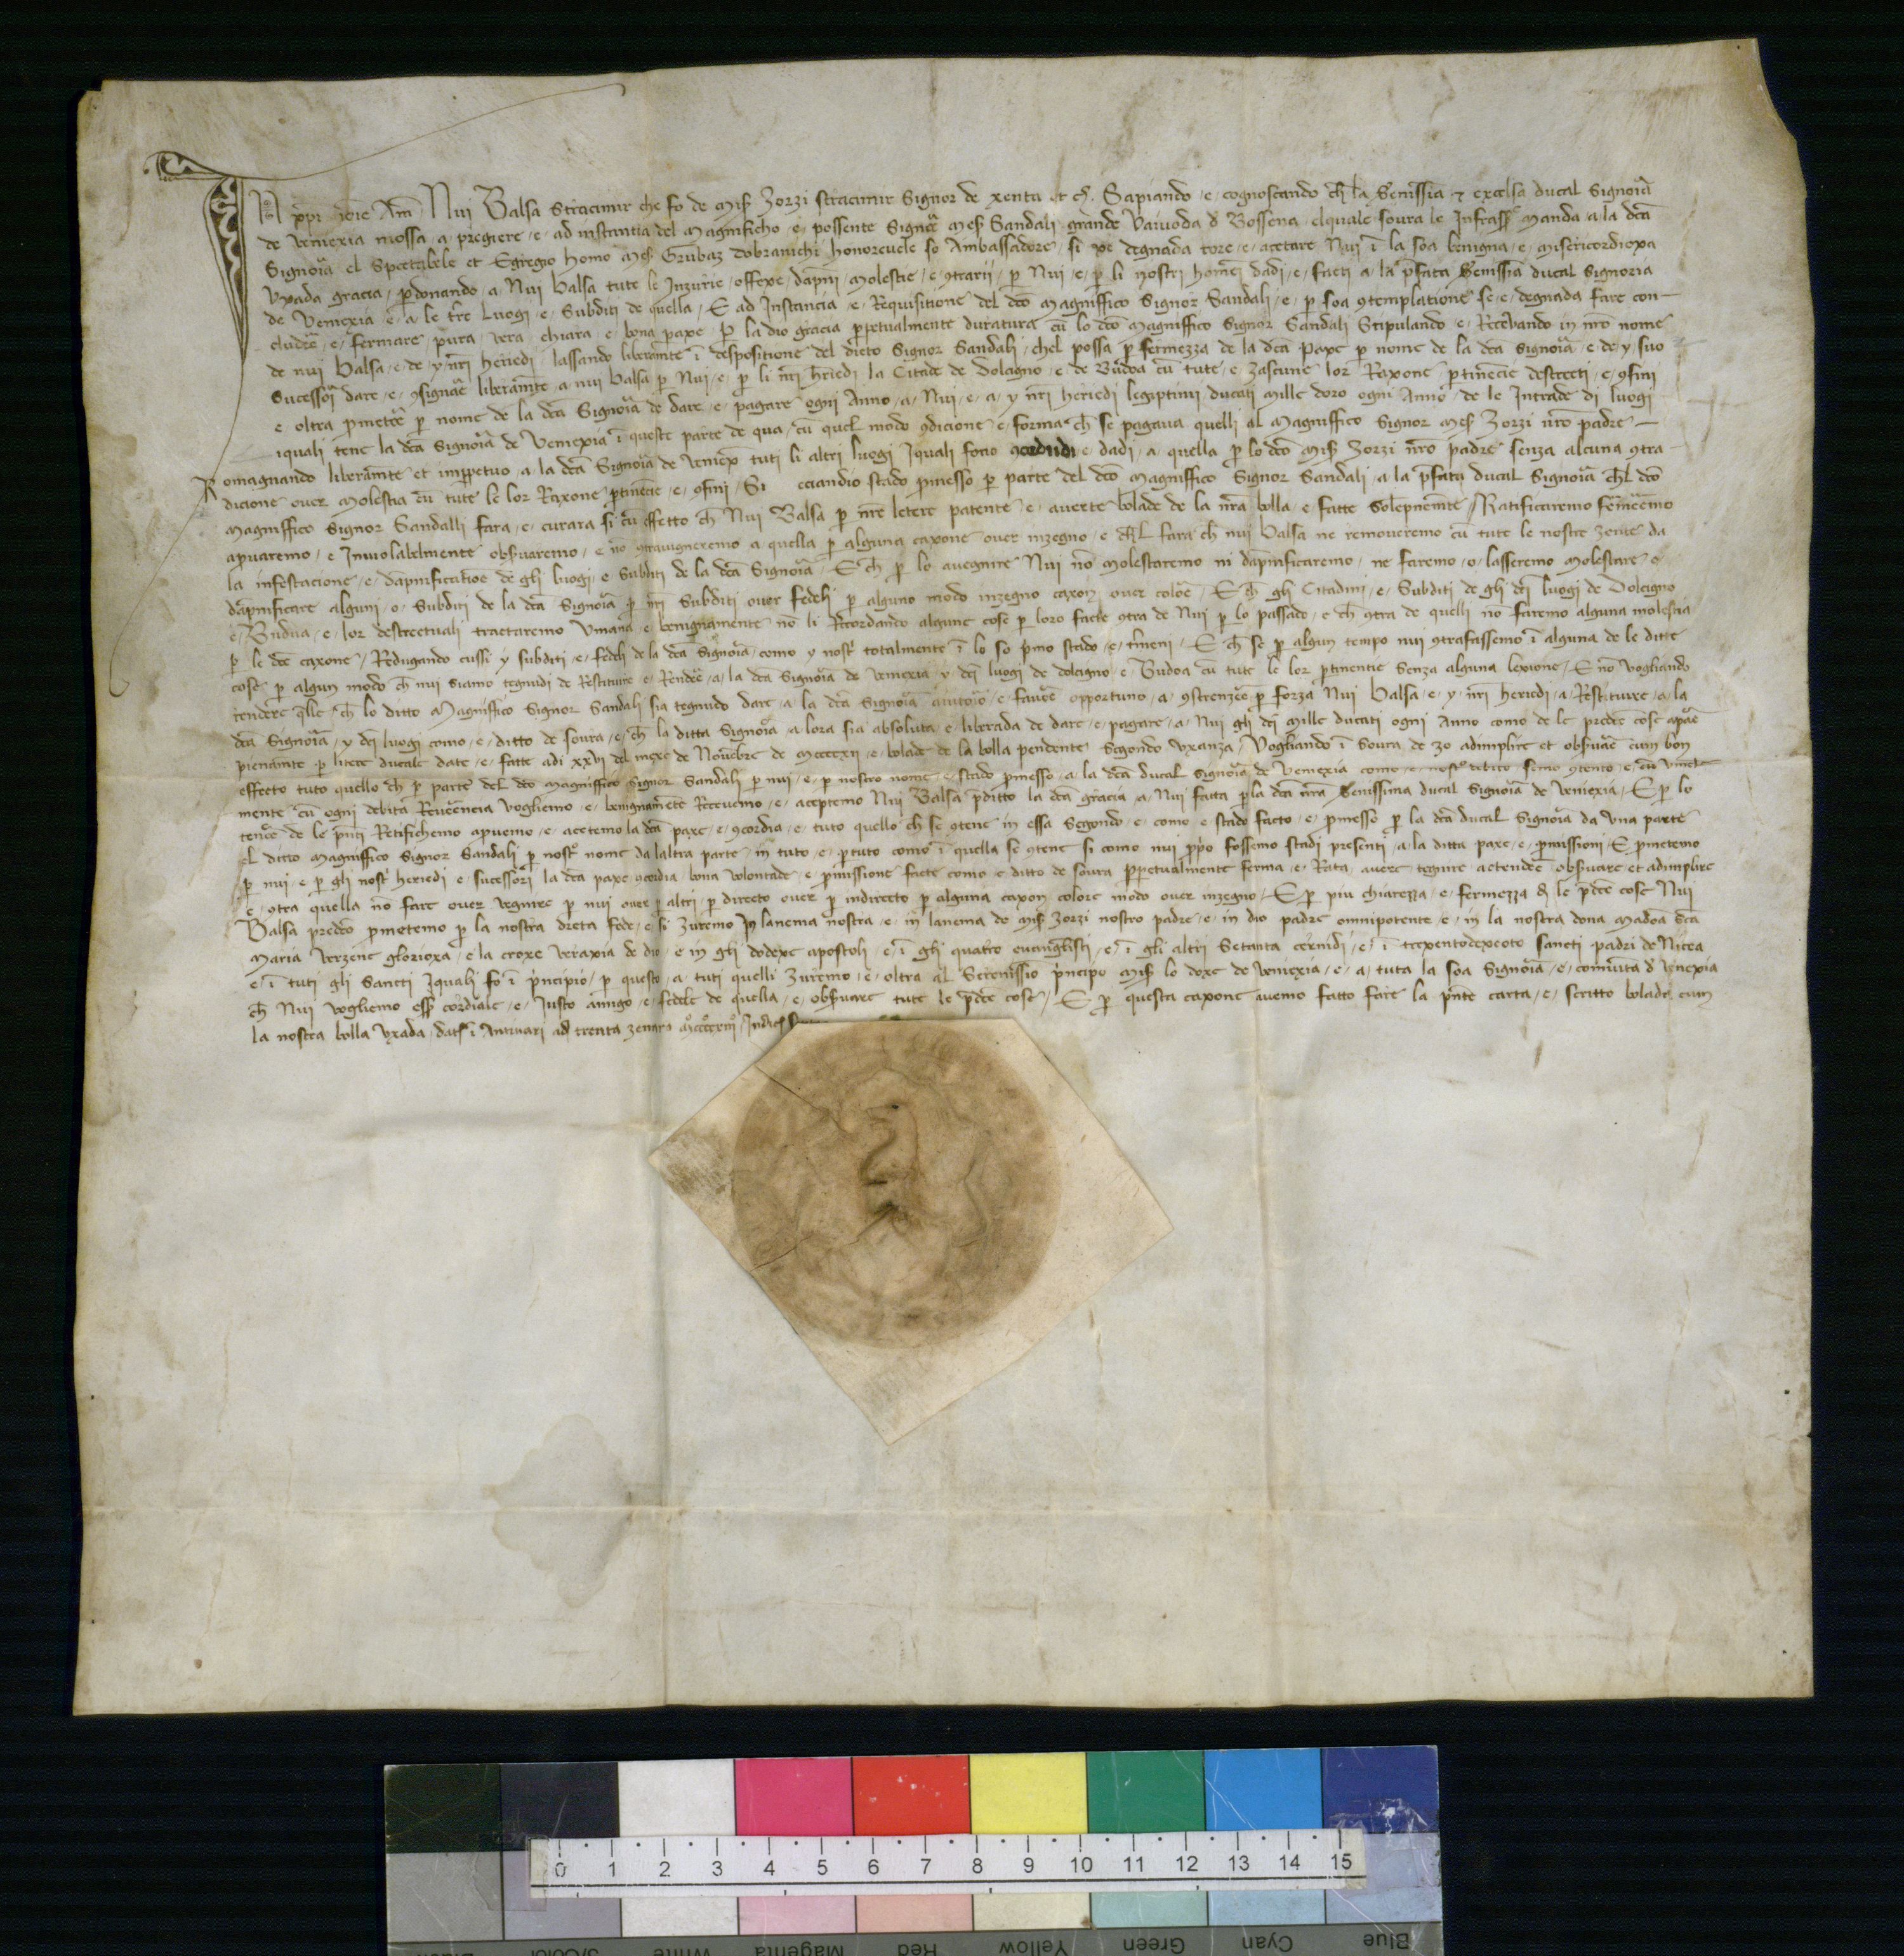 IN xp̄i noīe Am̄ Nui Balsa Stracimir che fo de Miss̄ Zorzi stracimir Signor de xenta et c̄. Sapiando e cognoscando ch̄ la Senissīa & excelsa ducal Signoiā
de veniexia mossa a pregiere e ad instantia del Magnificho e possente Signōr Mess̄ Sandali grande Vaivoda d Bossena elquale soura le Infrass̄ manda a la dc̄ā
Signoiā el Spectabele et Egregio homo Mess̄ Grubaz dobranichi honorevele so Ambassadore si xe degnada tore e acetare Nui ī la soa benigna e misericordioxa
Vxada gracia p̄donando a Nui Balsa tute le Inzurie offexe dapni molestie e 9trarii p̄ Nui e p̄ li nostri homeī dadi e facti a la p̄fata Senissīa ducal Signoria
de Veniexia e a le t̄re Luogi e Subditi de quella / E ad Instancia e Requisitione del dc̄o Magniffico Signor Sandali e p̄ soa 9templatione se e degnada fare con-
cludēr e fermare pura vera chiara e bona paxe p̄ la dio gracia p̄petualmente duratura cū lo dc̄o Magniffico Signor Sandali Stipulando e Recebando in nr̄o nome
de nui Balsa e de y nr̄i heriedi lassando liberam̄te ī despositione del dicto Signor Sandali chel possa p̄ fermezza de la dc̄ā paxe p̄ nome de la dc̄ā Signoiā e de y suo
Sucessoī dare e 9signāe liberam̄te a nui Balsa p̄ Nui e p̄ li nr̄i h̄riedi la Citade de Dolcigno e de Budoa cū tute e zascune lor Raxone p̄tinēcie destreti e 9fini
e oltra p̄metēr p̄ nome de la dc̄ā Signoiā de dare e pagare ogni Anno a Nui e a y nr̄i heriedi legiptimi ducati mille doro ogni Anno de le Intrade di luogi
iquali tene la dc̄ā Signoiā de Veniexia ī queste parte de qua cū quel modo 9dicione e forma ch̄ se pagaua quelli al Magniffico Signor Mess̄ Zorzi nr̄o padre
Romagnando liberam̄te et imp̄petuo a la dc̄ā Signoiā de Veniex̄ tuti li altri luogi Iquali forio 9cedudi e dadi a quella p̄ lo dc̄o Miss̄ Zorzi nr̄o padre senza alcuna 9tra-
dicione ouer Molestia cū tute le lor Raxone p̄tinēcie e 9fini / Si eciandio stado p̄messo p̄ parte del dc̄o Magniffico Signor Sandali a la p̄fata ducal Signoiā ch̄l dc̄o
Magniffico Signor Sandalli fara e curara si cū effetto ch̄ Nui Balsa p̄ nr̄e letere patente e auerte bolade de la nr̄ā bolla e fatte solepnem̄te / Ratificaremo
apuaremo e Inuiolabelmente obs̄uaremo e nō 9trauigneremo a quella p̄ alguna caxone ouer inzegno e ch̄l fara ch̄ nui Balsa ne remoueremo cū tute le nostre zente da
la infestacione e dāpnificatiōe de gli luogi e Subditi de la dc̄ā Signoiā / E ch̄ p̄ lo auegnire Nui nō molestaremo ni dāpnificaremo ne faremo o lasseremo Molestare o
dāpnificare alguni o Subditi de la dc̄ā Signoiā p̄ nr̄i Subditi ouer fedeli p̄ alguno modo inzegno caxon ouer coloē / E ch̄ gli Citadini e Subditi de gli dc̄i luogi de Dolcigno
e Budua e lor destrectuali tractaremo Vmana e benignamente nō li Recordando algune cose p̄ loro facte 9tra de Nui p̄ lo passado e ch̄ 9tra de quelli nō faremo alguna molestia
p̄ le dc̄e caxone / Redugando cussi y subditi e fedeli de la dc̄ā Signoiā como y nost̄ totalmente ī lo so p̄mo stado e t̄meni / E ch̄ se p̄ algun tempo nui 9trafassemo ī alguna de le ditte
cose p̄ algun modo ch̄ nui siamo tegnudi de Restituire e Rendēr a la dc̄ā Signoiā de Veniexia y dc̄i luogi de dolcigno e Budoa cū tute le lor p̄tinentie Senza alguna lexione / E nō vogliando
rendere q̄lle ch̄ lo ditto Magniffico Signor Sandali sia tegnudo dare a la dc̄ā Signoiā aiutoīo e fauōe opportuno a 9strenzēr p̄ forza Nui Balsa e y nr̄i heriedi a Restituire a la
dc̄ā Signoiā y dc̄i luogi como e ditto de soura e ch̄ la ditta Signoiā a lora sia absoluta e liberada de dare e pagare a Nui gli dc̄i Mille ducati ogni Anno como de le predc̄e cose apāe
pienam̄te p̄ litere ducale date e fatte adi xxvi del mexe de Nouēbre de Mccccxii e bolade de la bolla pendente Segondo Vxanza / Vogliando ī Soura de zo adimplire et obs̄uāe cum bon
effecto tuto quello ch̄ p̄ parte del dc̄o Magniffico Signor Sandali p̄ nui e p̄ nostro nome e stado p̄messo a la dc̄ā ducal Signoiā de Veniexia como e nost̄o debito semo 9tento e cū
mente cū ogni debita Reuēencia Vogliemo e benignam̄ente Receuemo e aceptemo Nui Balsa p̄ditto la dc̄ā gracia a Nui fatta p̄ la dc̄ā nr̄ā Senissima ducal Signoiā de Veniexia / E p̄ lo
tenōe de le p̄nti Retifichemo apuemo e acetemo la dc̄ā paxe e 9cordia e tuto quello ch̄ se 9tene in essa Segondo e como e stado facto e p̄messo p̄ la dc̄ā ducal Signoiā da Vna parte
el ditto Magniffico Signor Sandali p̄ nost̄o nome da laltra parte in tuto e p̄ tuto como ī quella se 9tene si como nui p̄p̄o fossemo stadi presenti a la ditta paxe e p̄missioni / E p̄metemo
p̄ nui e p̄ gli nost̄ heriedi e sucessori la dc̄ā paxe 9cordia bona volontade e p̄missione facte como e ditto de soura p̄petualmente ferma e Rata auere tegnire actendēr obs̄uare et adimplire
e 9tra quella nō fare ouer vegnire p̄ nui ouer p̄ altri p̄ directo ouer p̄ indirecto p̄ alguna caxon colore modo ouer inzegno / E p̄ piu chiarezza e fermezza d le p̄dc̄e cose Nui
Balsa predc̄o p̄metemo p̄ la nostra dreta fede e si zuremo In lanema nostra e in lanema de miss̄ Zorzi nostro padre e in dio padre omnipotente e in la nostra dona Madōa sc̄ā
Maria Verzene glorioxa e la croxe Veraxia de dio e in gli dodexe apostoli e ī gli quatro euangl̄isti e ī gli altri Setanta cernidi e ī trexentodexeoto sancti padri de Nicea
e ī tuti gli Sancti Iquali fo ī principio p̄ questo a tuti quelli zuremo e oltra al Serenissīo p̄ncipo miss̄ lo doxe de Veniexia e a tuta la soa Signoiā e comūita d Vnexia
ch̄ Nui vogliemo ess̄ cordiale e Iusto amigo e fedele de quella e obs̄uare tute le p̄dc̄e cose / E p̄ questa caxone auemo fatto fare la p̄nte carta e scritto bolada cum
la nostra bolla Vxada / dat̄ ī Antiuari adi trenta zenaro Mccccxiii
0 1 2 3 4 5 6 7 8 9 10 11 12 13 14 15
White Magenta Red Yellow Green Cyan Blue